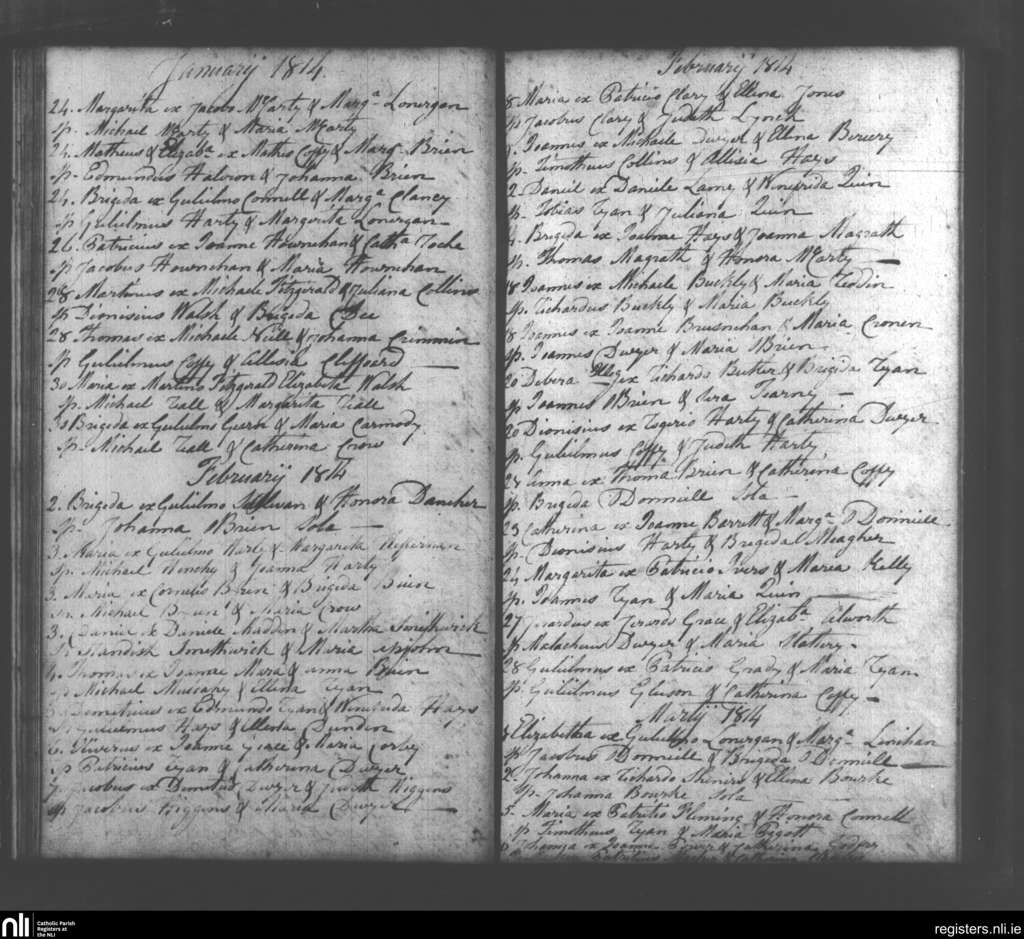 Januarij 1814.
24. Margarita ex Jacobo McCarty & Marga Lonergan
sp. Michael McCarty & Maria McCarty
24. Matheus & Elizaba ex Matheo Coffy & Marga Brien
sp. Edmundus Halvron & Johanna Brien
24. Brigida ex Gulielmo Connell & Marga Clancy
sp Gulielmus Harty & Margarita Lonergan
26. Patricius ex Joanne Hournehan & Catha
sp Jacobus Hournehan & Maria Hournehan
28 Martinus ex Michaele Fitzgerald & Juliana Collins
sp Dionisius Walsh & Brigida Dee
28 Thomas ex Michaele Neill & Johanna Crimmin
sp Gulielmus Coffy & Allisia Cliffoard
30 Maria ex Martino Fitzgerald Elizabeta Walsh
sp. Michael & Margarita
30 Brigida ex Gulielmo Guern & Maria Carmody
sp. Michael & Catherina Crow
Februarij 1814
2. Brigida ex Gulielmo Sullivan & Honora Daneher
sp. Johanna OBrien Sola
3. Maria ex Gulielmo Harty & Margarita
sp. Michael Henchy & Joanna Harty
3. Maria ex Cornelio Brien & Brigida Brien
sp. Michael Brien & Maria Crow
3. Daniel ex Daniele Maddin & Martha Smithwick
sp. Standish Smithwick & Maria
4. Thomas ex Joanne Mara & Anna Brien
sp Michael & Ellena Ryan
Demetrius ex Edmundo Ryan & Winifrida Hays
sp Gulielmus Hays & Ellena Dundon
6. Oliverus ex Joanne Grace & Maria Corby
sp Patricius Ryan & Catherina Dwyer
7. Jacobus ex Dwyer & Judith Higgins
sp Jacobus Higgins & Maria Dwyer
Februarij 1814
8 Maria ex Patricio Clary & Ellena Jones
sp Jacobus Clary & Judith Lynch
Joannes ex Michaele Dwyer & Ellena
sp. Timotheus Collins & Allisia Hays
2 Daniel ex Daniele Lame & Winifrida Quin
sp. Tobias Ryan & Juliana Quin
Brigida ex Joanne Hays & Joanna Magrath
sp. Thomas Magrath & Honora McCarty
18 Joannes ex Michaele Buckly & Maria
sp. Richardus Buckly & Maria Buckly
18 Joannes ex Joanne Brusnehan & Maria Cronen
sp. Joannes Dwyer & Maria OBrien
20 Debora ex Richardo Butler & Brigida Ryan
sp Joannes OBrien & Tearney
20 Dionisius ex Rogerio Harty & Catherina Dwyer
sp. Gulielmus Coffy & Judith Harty
23 Anna ex Thoma Brien & Catherina Coffy
sp. Brigida ODonniell Sola
23 Catherina ex Joanne Barrett & Marga ODonniell
sp. Dionisius Harty & Brigida Meagher
24 Margarita ex Patricio Ivers & Maria Kelly
sp. Joannes Ryan & Maria Quin
27 Gerardus ex Gerardo Grace & Elizaba Ailworth
sp Malacheus Dwyer & Maria Slatery
28 Gulielmus ex Patricio Grady & Maria Ryan
sp. Gulielmus Gleeson & Catherina Coffy
Martij 1814
Elizabetha ex Gulielmo Lonergan & Marga Linihan
sp Jacobus ODonniell & Brigida ODonniell
2 Johanna ex Richardo & Ellena Bourke
sp. Johanna Bourke Sola
5. Maria ex Patritio Fleming & Honora Connell
sp Timotheus Ryan & Maria Piggott
Johanna ex Joanne Power & Catherina
nli
Catholic Parish
Registers at
the NLI
registers.nli.ie